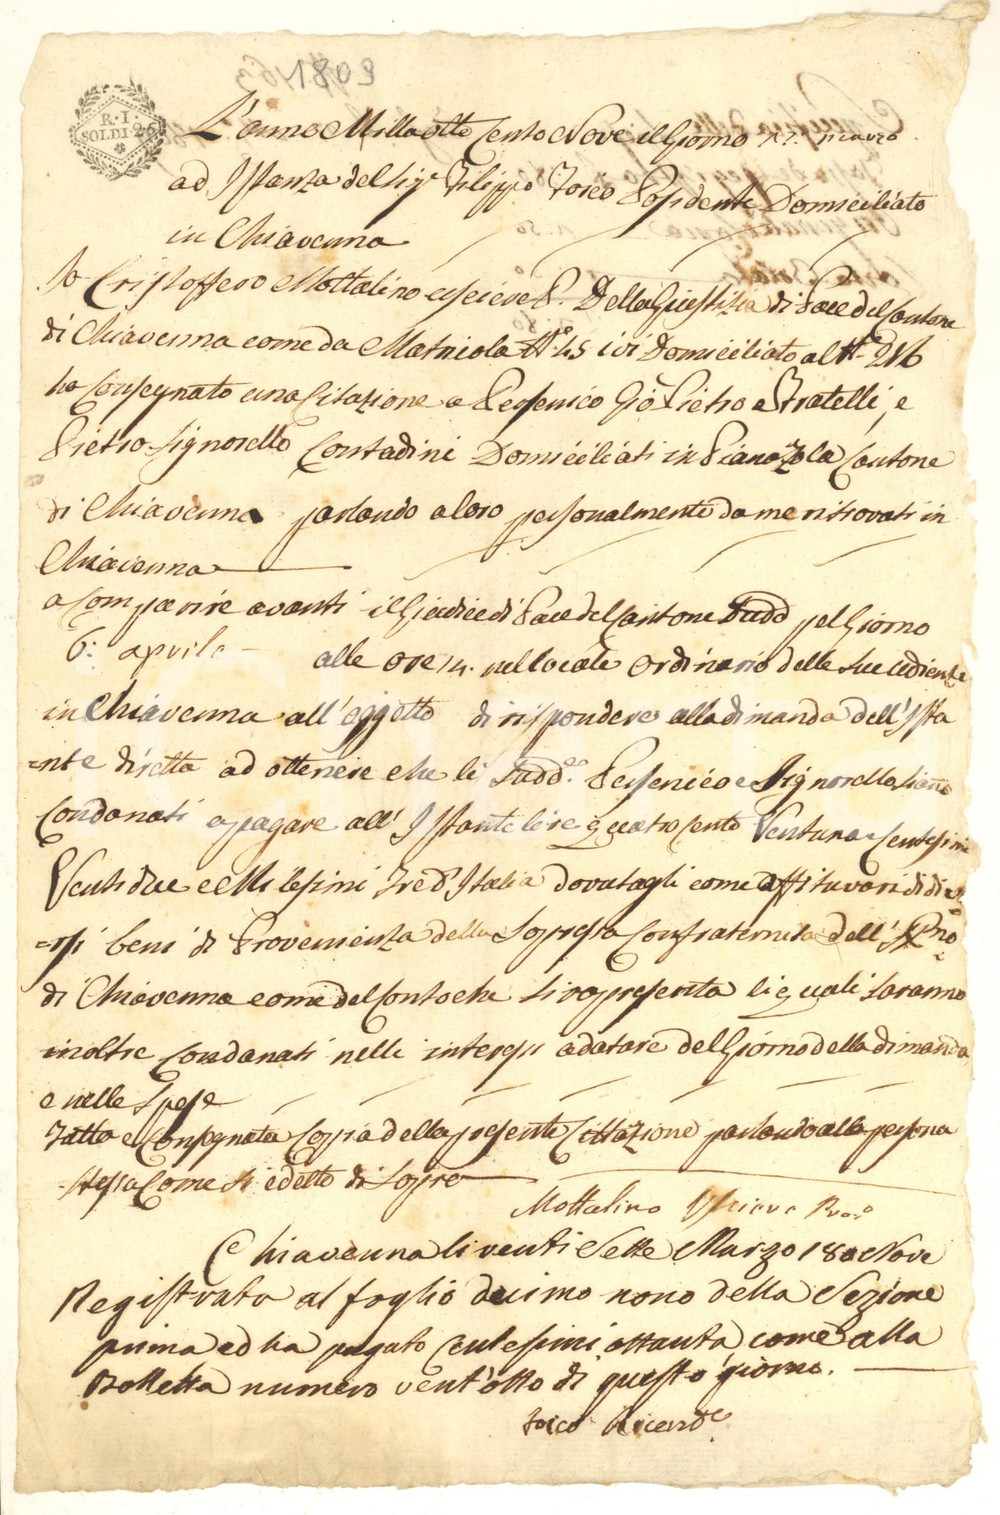 1809
R. I.
SOLDI. 26
L'anno Mille otto Cento Nove il Giorno 27. marzo
ad Istanza del Sigr Filippo Foico Possidente Domiciliato
in Chiavenna
Io Cristofforo Mottalino usciere P. Della Giustizia di Pace del Cantone
di Chiavenna come da Matricola No. 45 ivi Domiciliato al No. 216
ho Consegnato una Citazione a Persenico Gio Pietro e Fratelli, e
Pietro Signorello Contadini Domiciliati in Pianazola Cantone
di Chiavenna parlando a loro personalmente da me ritrovati in
Chiavenna
a Comparire avanti il Giudice di Pace del Cantone Sudd pel Giorno
6: aprile alle ore 14. nel locale ordinario delle sue udienze
in Chiavenna all'oggetto di rispondere alla dimanda dell'Ista
=nte diretta ad ottenere che li Sudd. Persenico e Signorello siano
Condanati a pagare all'Istante lire Quatro Cento Ventuna e Centesimi
Venti due e Milesimi Tre d'Italia dovutagli come affituari di di
=rsi beni di Provenienza della Sopressa Confraternita dell'
di Chiavenna come del Conto che si rapresenta li quali saranno
inoltre Condanati nelli interessi a datare del Giorno della dimanda
e nelle Spese
Fatta e Consegnata Coppia della presente Cittazione parlando alla persona
stessa Come si è detto di Sopra
Mottalino Usciere
Chiavenna li venti Sette Marzo 180 Nove
Registrata al foglio decimo nono della Sezione
prima ed ha pagato Centesimi ottanta come alla
Bolletta numero vent'otto di questo giorno.
Foico